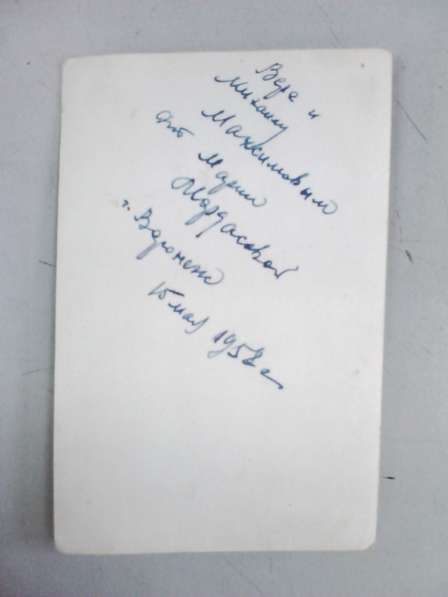 Вере и
Михаилу
Максимовым
от Марии
Мордасовой
г. Воронеж
15 мая 1958 г.